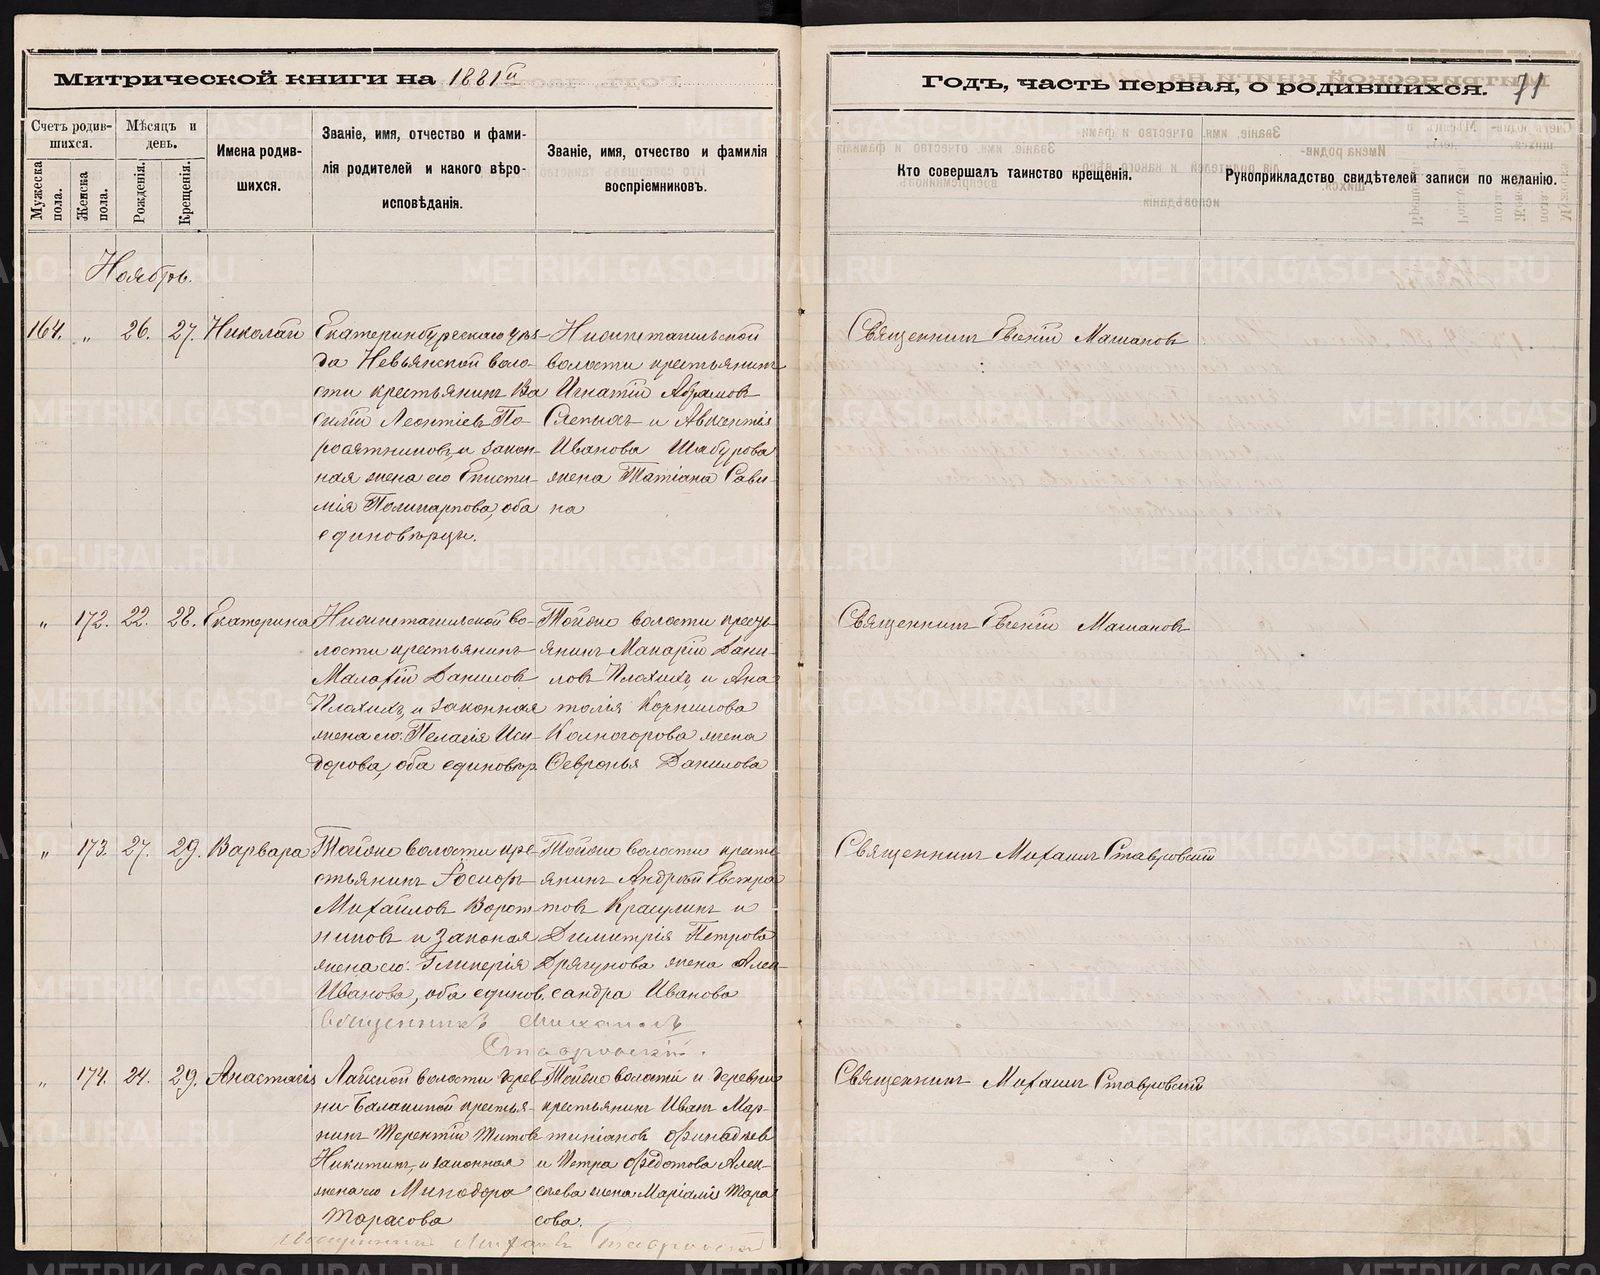 Митрической книги на 1881й
Годъ, часть первая, о родившихся. 71
Счетъ родив-
шихся.
Мужеска
пола.
Женска
пола.
Мѣсяцъ и
день.
Рожденія.
Крещенія.
Имена родив-
шихся.
Званіе, имя, отчество и фами-
лія родителей и какого вѣро-
исповѣданія.
Званіе, имя, отчество и фамилія
воспріемниковъ.
Кто совершалъ таинство крещенія.
Рукоприкладство свидѣтелей записи по желанію.
Ноябрь.
164. „ 26. 27. Николай
Екатеринбургскаго уѣз
да Невьянской воло-
сти крестьянинъ Ва
силій Леонтіевъ По-
росятниковъ, и закон-
ная жена его Еписти-
мія Поликарпова, оба
единовѣрцы.
Нижнетагильской
волости крестьянинъ
Игнатій Абрамовъ
Слепыхъ и Авксентія
Иванова Шабурова
жена Татіана Сави-
на
Священникъ Евгеній Машановъ
„ 172. 22. 28. Екатерина
Нижнетагильской во-
лости крестьянинъ
Малафій Даниловъ
Плохихъ, и законная
жена его Пелагія Иси-
дорова, оба единовѣр.
Тойже волости кресть
янинъ Макарій Дани-
ловъ Плохихъ, и Ана
толія Корнилова
Колногорова жена
Февронья Данилова
Священникъ Евгеній Машановъ
„ 173. 27. 29. Варвара
Тойже волости кре-
стьянинъ Іосифъ
Михайловъ Ворот-
никовъ и законая
жена его Гликерія
Иванова, оба единов.
Священникъ Михаилъ
Ставровскій.
Тойже волости крестья
янинъ Андрей Евстра
товъ Красулинъ и
Димитрія Петрова
Дрягунова жена Алек-
сандра Иванова
Священникъ Михаилъ Ставровскій
„ 174. 24. 29. Анастасія
Лайской волости дерев
ни Балакиной крестья-
нинъ Терентій Титовъ
Никитинъ, и законная
жена его Минодора
Тарасова
Тойже волости и деревни
крестьянинъ Иванъ Мар-
тиніановъ
и Петра Федотова Алек-
сѣева жена Маріамія Тара
сова.
Священникъ Михаилъ Ставровскій
Священникъ Михаилъ Ставровскій
METRIKI.GASO-URAL.RU